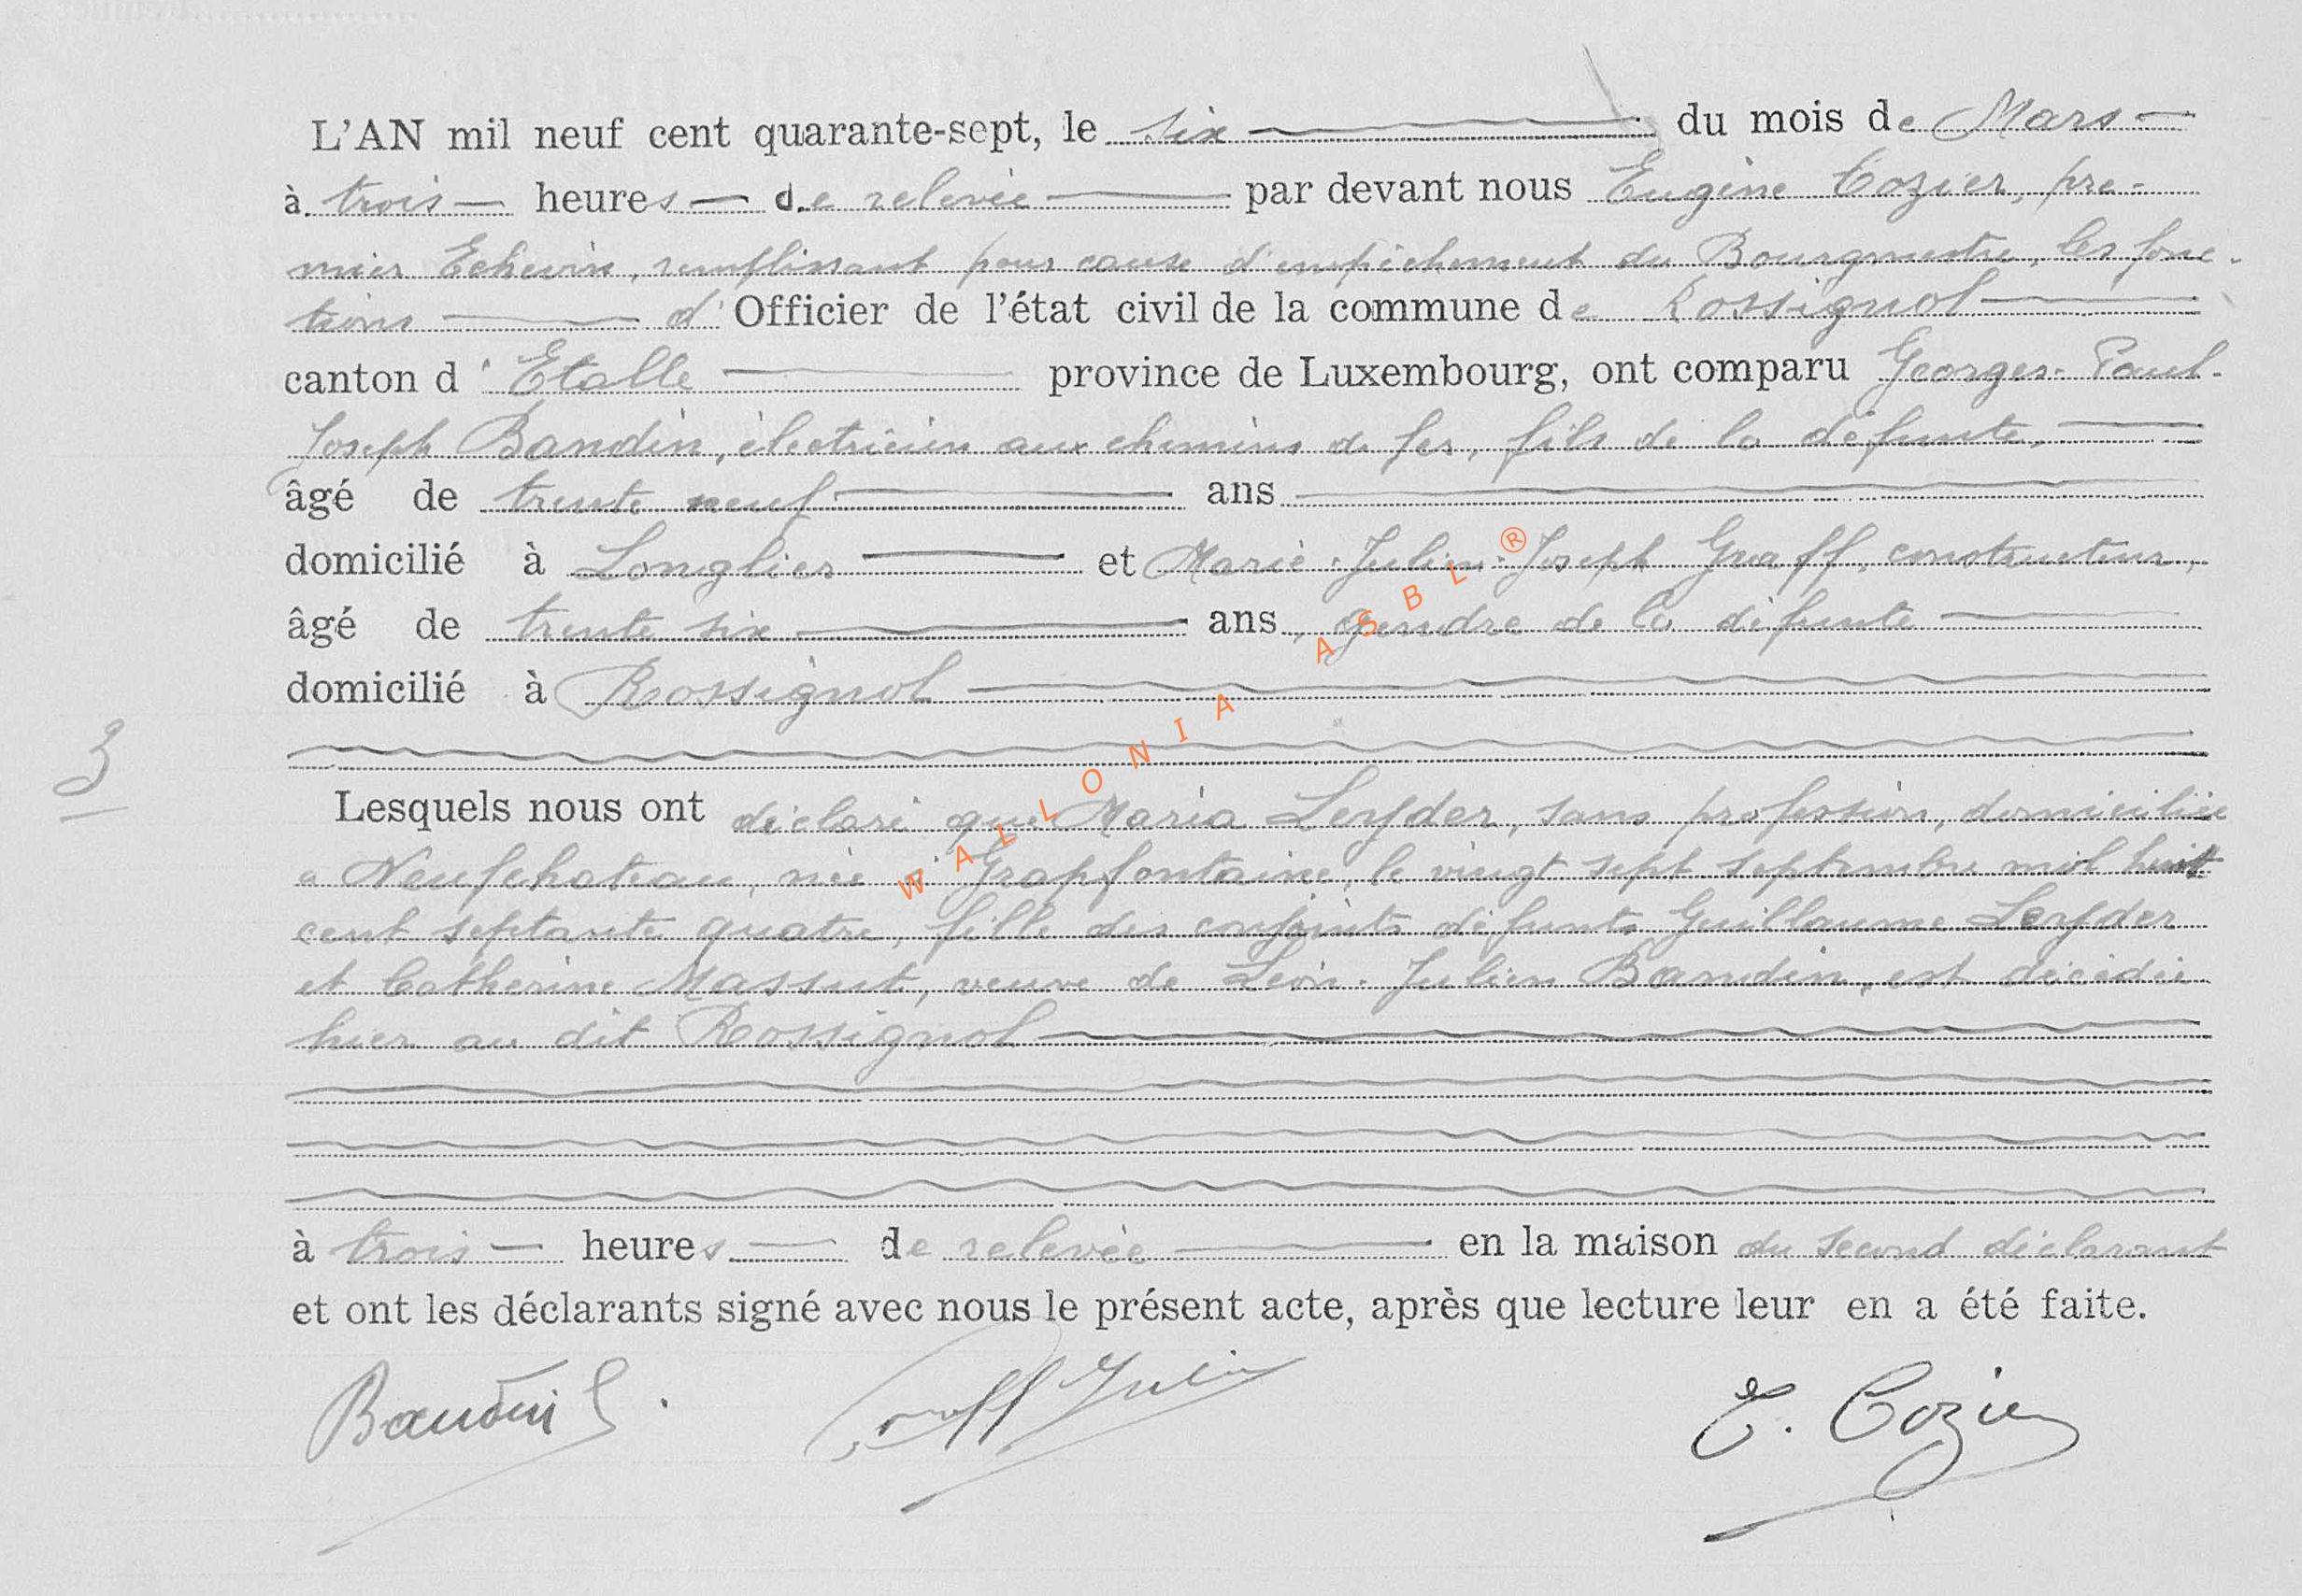 L'AN mil neuf cent quarante-sept, le six du mois de Mars
à trois heures de relevée par devant nous Eugène Cozier, pre-
mier Echevin, remplissant pour cause d'empêchement du Bourgmestre, les fonc-
tions d'Officier de l'état civil de la commune de Rossignol
canton d'Etalle province de Luxembourg, ont comparu Georges-Paul-
Joseph Baudin, électricien aux chemins de fer, fils de la défunte,
âgé de trente neuf ans
domicilié à Longlier et Marie-Julien-Joseph Graff, constructeur,
âgé de trente six ans, gendre de la défunte
domicilié à Rossignol
3
Lesquels nous ont déclaré que Maria Leyder, sans profession, domiciliée
à Neufchateau, née à Grapfontaine, le vingt sept septembre mil huit
cent septante quatre, fille des conjoints défunts Guillaume Leyder
et Catherine Massut, veuve de Léon-Julien Baudin, est décédée
hier au dit Rossignol
à trois heures de relevée en la maison du second déclarant
et ont les déclarants signé avec nous le présent acte, après que lecture leur en a été faite.
Baudin G. Graff Julien E. Cozier
WALLONIA ASBL ®